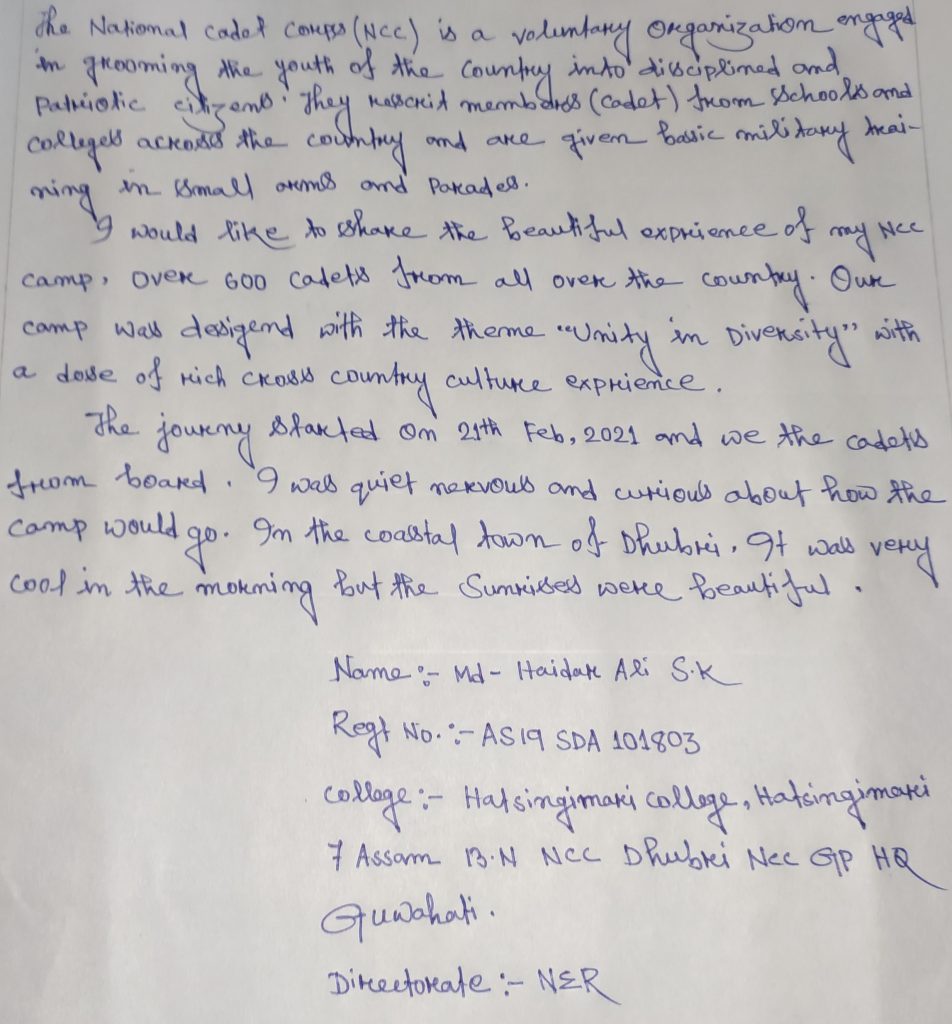 The National Cadet Courps (NCC) is a voluntary Organization engaged
in grooming the youth of the Country into disciplined and
Patriotic citizens. They rescrit members (Cadet) from Schools and
colleges across the country and are given basic military trai-
ning in Small arms and Parades.
I would like to share the beautiful exprience of my NCC
camp, Over 600 Cadets from all over the country. Our
camp was desigend with the theme "Unity in Diversity" with
a dose of rich cross country culture exprience.
The journy started on 21th Feb, 2021 and we the cadets
from board. I was quiet nervous and curious about how the
camp would go. In the coastal town of Dhubri. It was very
cool in the morning but the Sunrises were beautiful.
Name :- Md- Haidar Ali S.K
Regt No. :- AS19 SDA 101803
college :- Hatsingimari college, Hatsingimari
7 Assam B.N NCC Dhubri Ncc GP HQ
Guwahati.
Directorate :- NER